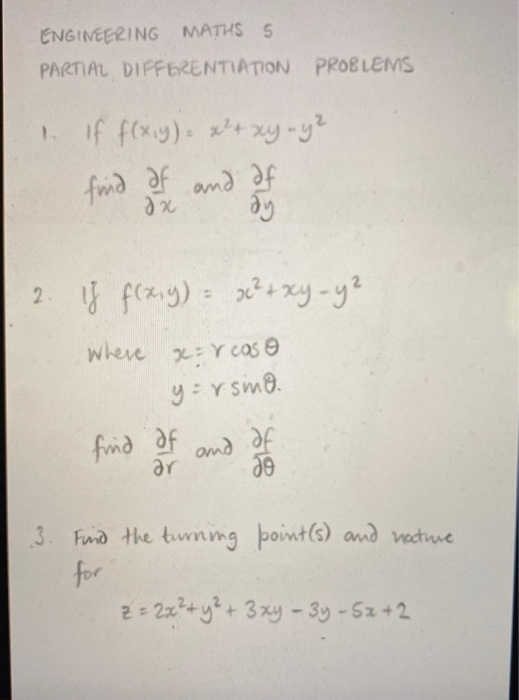 ENGINEERING MATHS 5
PARTIAL DIFFERENTIATION PROBLEMS
1. If f(x,y) = x² + xy - y²
find ∂f/∂x and ∂f/∂y
2. If f(x,y) = x² + xy - y²
where x = r cos θ
y = r sin θ.
find ∂f/∂r and ∂f/∂θ
3. Find the turning point(s) and nature
for
z = 2x² + y² + 3xy - 3y - 5x + 2